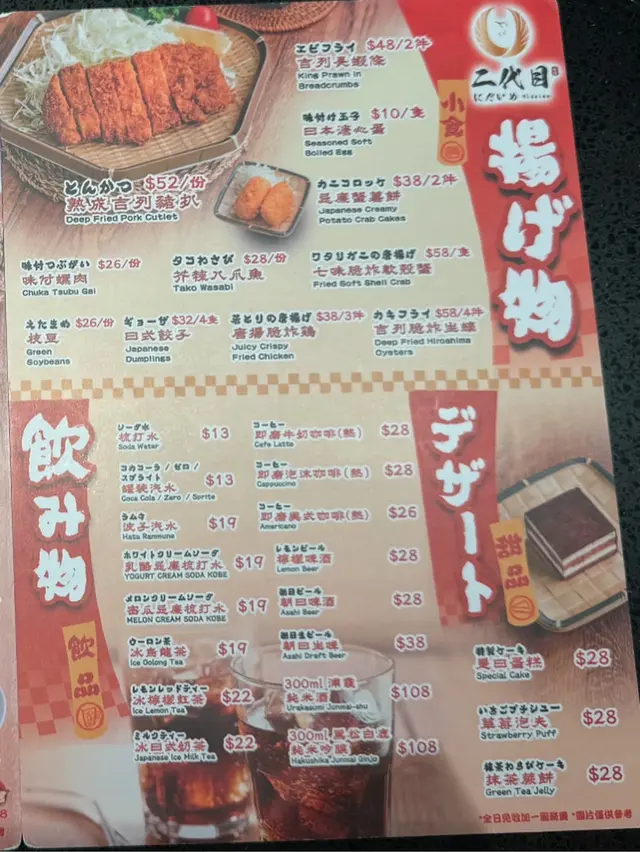 二代目
にだいめ Nidaime
揚げ物
小食
エビフライ $48/2件
吉列長蝦條
King Prawn in
Breadcrumbs
味付け玉子 $10/隻
日本溏心蛋
Seasoned Soft
Boiled Egg
とんかつ $52/份
熟成吉列豬扒
Deep Fried Pork Cutlet
カニコロッケ $38/2件
豆腐蟹薯餅
Japanese Creamy
Potato Crab Cakes
味付つぶがい $26/份
味付螺肉
Chuka Tsubu Gai
タコわさび $28/份
芥辣八爪魚
Tako Wasabi
ワタリガニの唐揚げ $58/隻
七味脆炸軟殼蟹
Fried Soft Shell Crab
えだまめ $26/份
枝豆
Green
Soybeans
ギョーザ $32/4隻
日式餃子
Japanese
Dumplings
$38/3件
唐揚脆炸鶏
Juicy Crispy
Fried Chicken
カキフライ $58/4件
吉列脆炸生蠔
Deep Fried Hiroshima
Oysters
飲み物
飲品
ソーダ水
梳打水 $13
Soda Water
コカコーラ / ゼロ /
スプライト
罐裝汽水 $13
Coca Cola / Zero / Sprite
ラムネ
波子汽水 $19
Hata Rammune
ホワイトクリームソーダ
乳酪豆腐梳打水 $19
YOGURT CREAM SODA KOBE
メロンクリームソーダ
密瓜豆腐梳打水 $19
MELON CREAM SODA KOBE
ウーロン茶
冰烏龍茶 $19
Ice Oolong Tea
レモンレッドティー
冰檸檬紅茶 $22
Ice Lemon Tea
ミルクティー
冰日式奶茶 $22
Japanese Ice Milk Tea
コーヒー
即磨牛奶咖啡(熱) $28
Cafe Latte
コーヒー
即磨泡沫咖啡(熱) $28
Cappuccino
コーヒー
即磨美式咖啡(熱) $26
Americano
レモンビール
檸檬啤酒 $28
Lemon Beer
朝日ビール
朝日啤酒 $28
Asahi Beer
朝日生ビール
朝日生啤 $38
Asahi Draft Beer
300ml 浦霞
純米酒 $108
Urakasumi Junmai-shu
300ml 黑松白鹿
純米吟釀 $108
Hakushika Junmai Ginjo
デザート
甜品
特製ケーキ
是日蛋糕 $28
Special Cake
いちごプチシュー
草莓泡夫 $28
Strawberry Puff
抹茶わらびケーキ
抹茶蕨餅 $28
Green Tea Jelly
*全日免收加一服務費 *圖片僅供參考